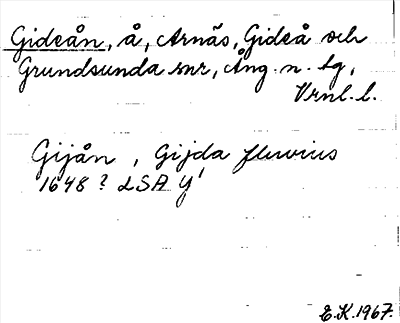 Gideån, å, Arnäs, Gideå och
Grundsunda snr, Ång. n. tg,
Vrnl. l.
Gijån, Gijda fluvius
1648? LSA Y'
E.K. 1967.